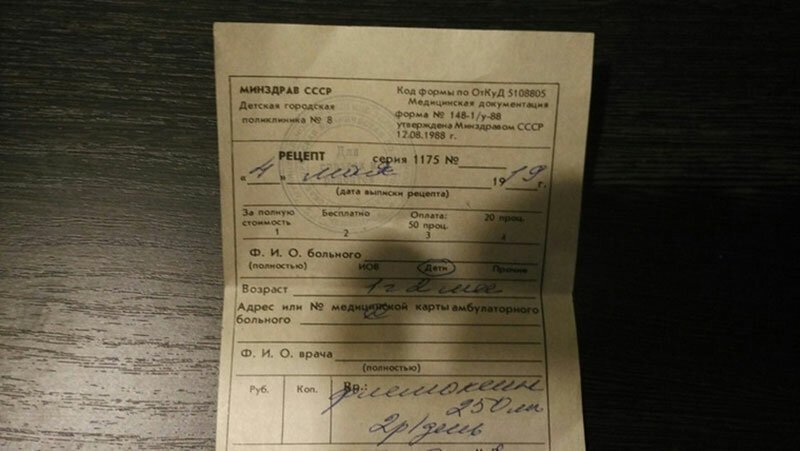 МИНЗДРАВ СССР
Детская городская
поликлиника № 8
Код формы по ОтКуД 5108805
Медицинская документация
форма № 148-1/у-88
утверждена Минздравом СССР
12.08.1988 г.
Для
РЕЦЕПТ серия 1175 №
« 4 » мая 19 19 г.
(дата выписки рецепта)
За полную стоимость 1
Бесплатно 2
Оплата: 50 проц. 3
20 проц. 4
Ф. И. О. больного
(полностью) ИОВ Дети Прочие
Возраст 1 г 2 мес
Адрес или № медицинской карты амбулаторного
больного
Ф. И. О. врача
(полностью)
Руб. Коп. Rp.: флемоксин
250 мг
2р/день